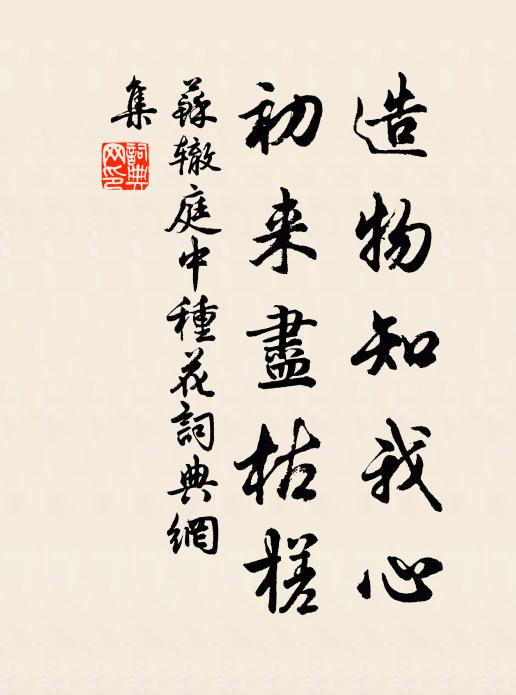 造物知我心
初来盡枯槎
蘇辙庭中種花詞典網
集
詞典
网印